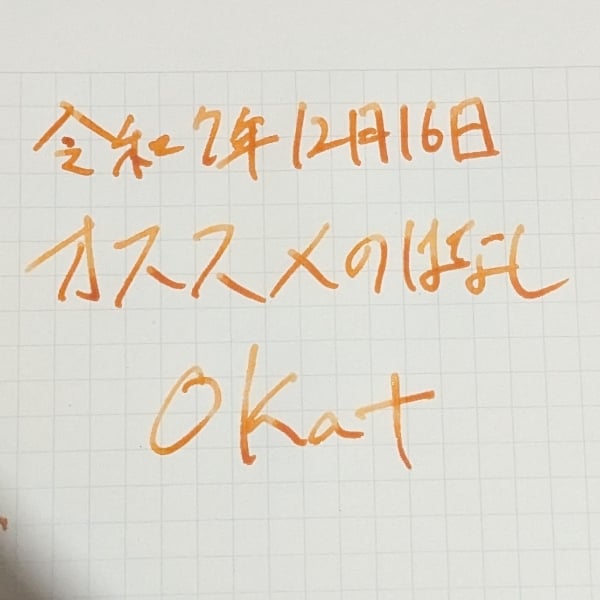 令和7年12月16日
オススメのはなし
Okat